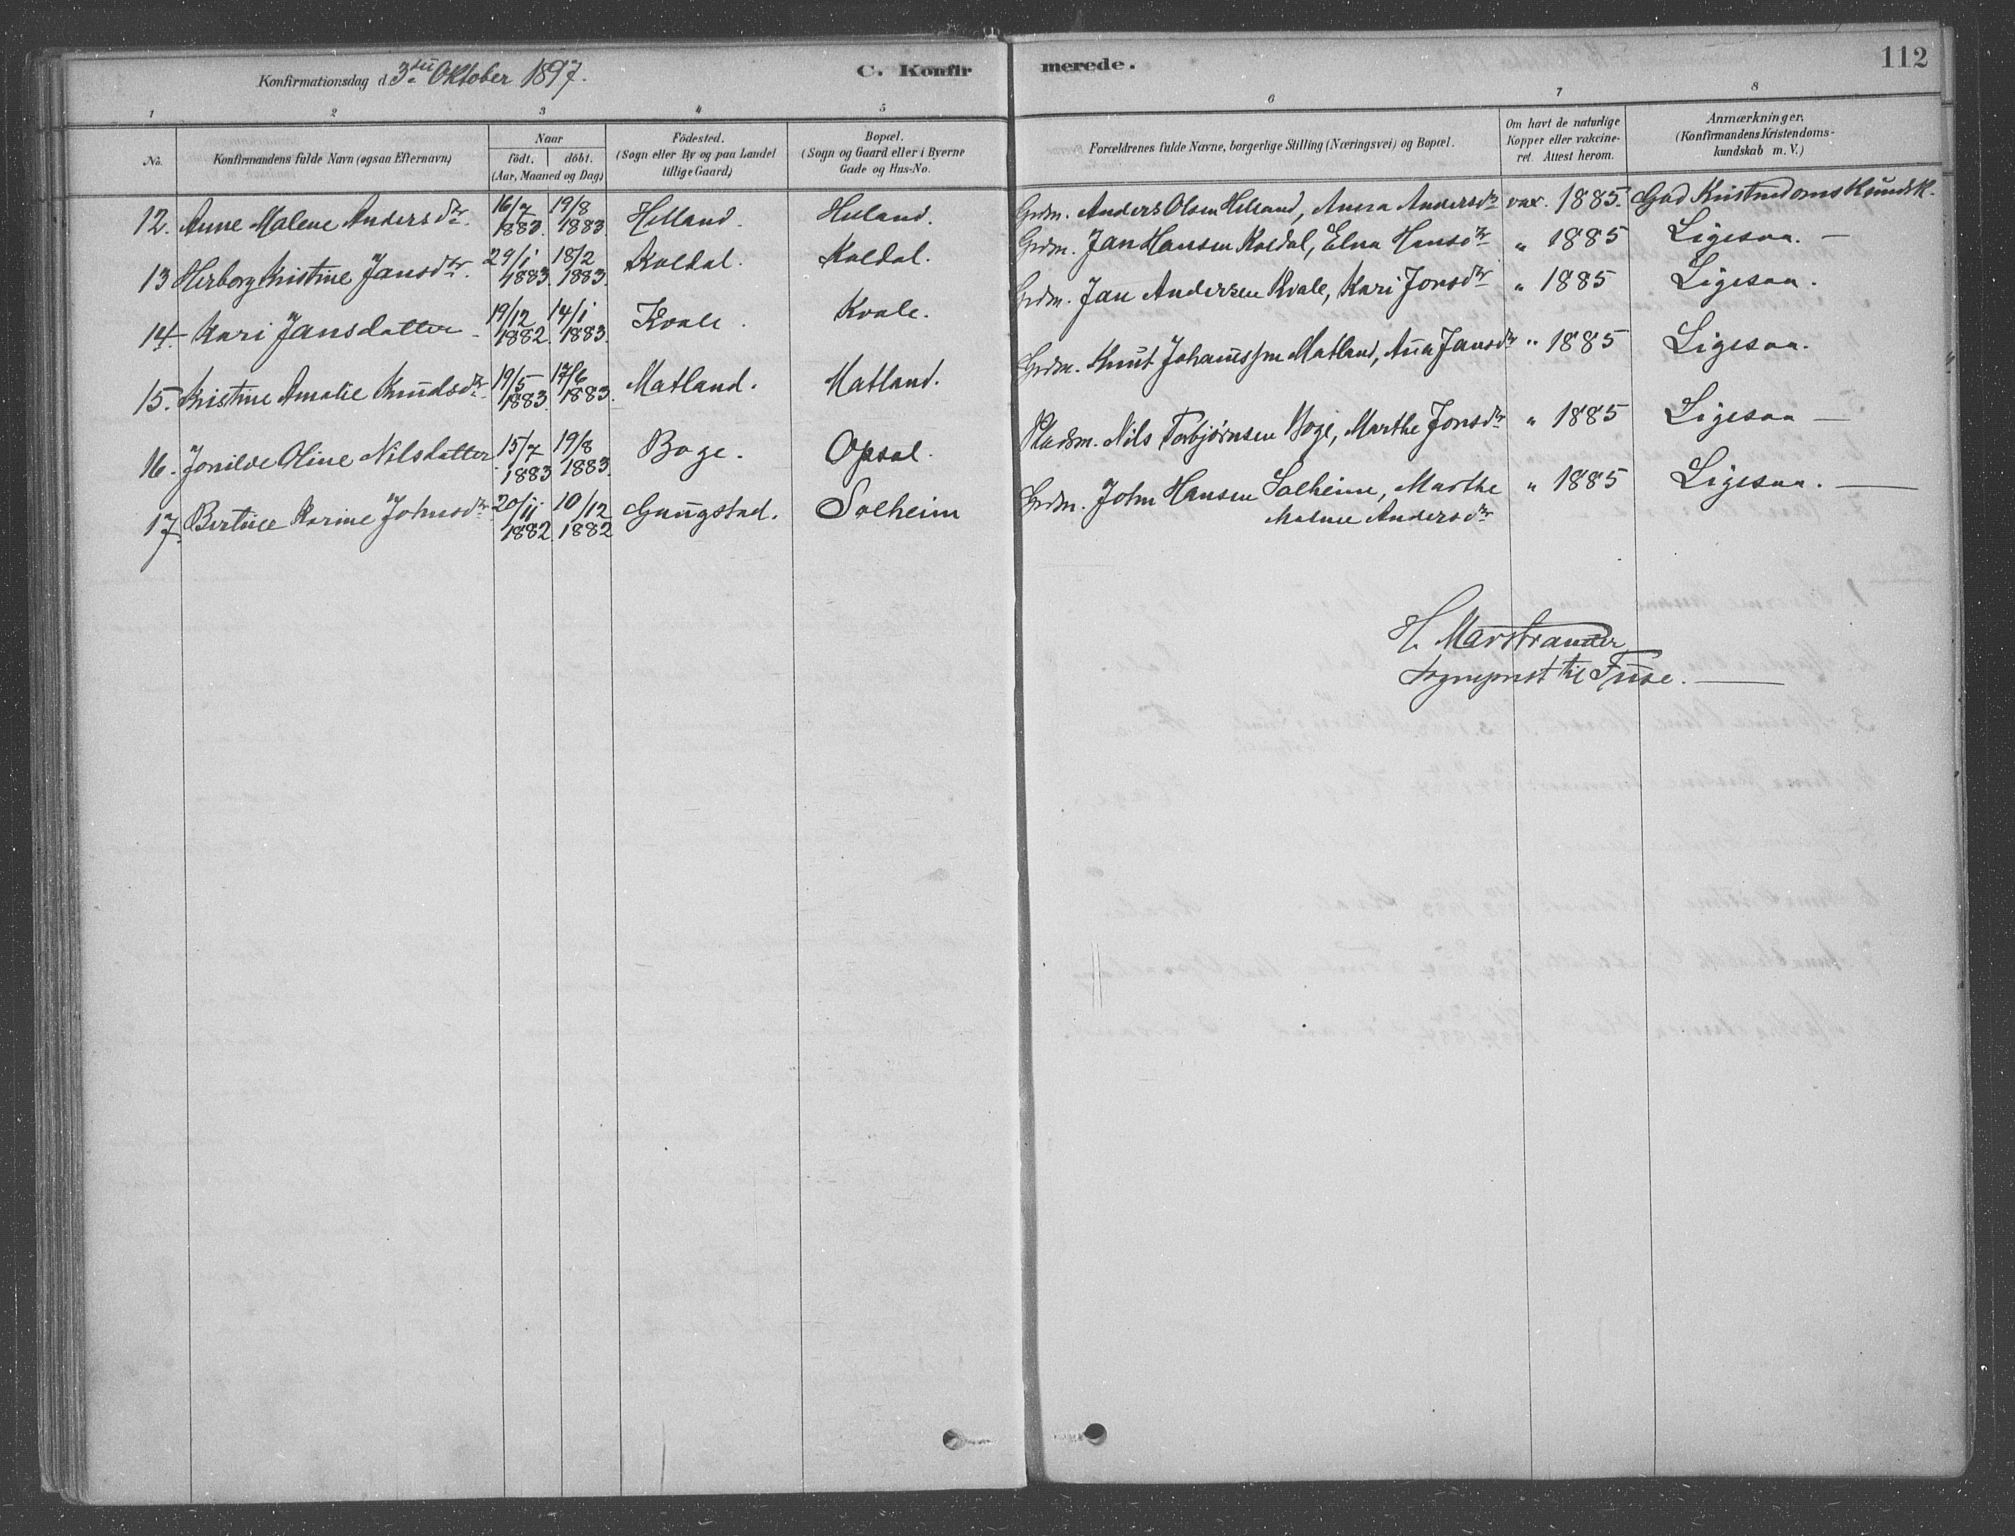 112
Konfirmationsdag d. 3die Oktober 1897.
C. Konfirmerede.
1 2 3 4 5 6 7 8
No.
Konfirmandens fulde Navn (ogsaa Efternavn)
Naar
födt. döbt.
(Aar, Maaned og Dag)
Födested.
(Sogn eller By og paa Landet
tillige Gaard)
Bopæl.
(Sogn og Gaard eller i Byerne
Gade og Hus-No.
Forældrenes fulde Navne, borgerlige Stilling (Næringsvei) og Bopæl.
Om havt de naturlige
Kopper eller vakcine-
ret. Attest herom.
Anmærkninger.
(Konfirmandens Kristendoms-
kundskab m. V.)
12. Anne Malene Andersdtr. 16/7 1883. 19/8 1883. Helland. Helland. Grdm. Anders Olsen Helland, Anna Andersdtr vax. 1885. God Kristendoms Kundsk.
13 Herborg Kristine Jansdtr. 29/1 1883. 18/2 1883. Koldal. Koldal. Grdm. Jan Hansen Koldal, Elna Hansdtr „ 1885 Ligesaa. —
14. Kari Jansdatter 19/12 1882. 14/1 1883. Kvale. Kvale. Grdm. Jan Andersen Kvale, Kari Jonsdtr „ 1885 Ligesaa.
15. Kristine Amalie Knudsdtr 19/5 1883. 17/6 1883. Matland. Matland. Grdm. Knut Johannssen Matland, Ana Jansdtr „ 1885 Ligesaa.
16. Jonilde Oline Nilsdatter 15/7 1883 19/8 1883. Boge. Opsal. Pladsm. Nils Torbjørnsen Boge, Marthe Jonsdtr „ 1885 Ligesaa —
17. Bertine Karine Johnsdtr 20/11 1882. 10/12 1882 Gaugstad. Solheim Grdm. John Hansen Solheim, Marthe „ 1885 Ligesaa. —
Malene Andersdtr
H. Marstrander
Sogneprest til Fuse. —